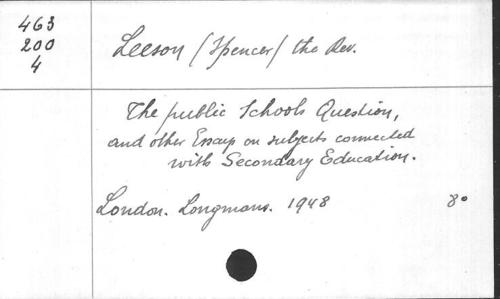 463
200
4
Leeson / Spencer / the Rev.
The public Schools Question,
and other Essays on subjects connected
with Secondary Education.
London. Longmans. 1948 8°